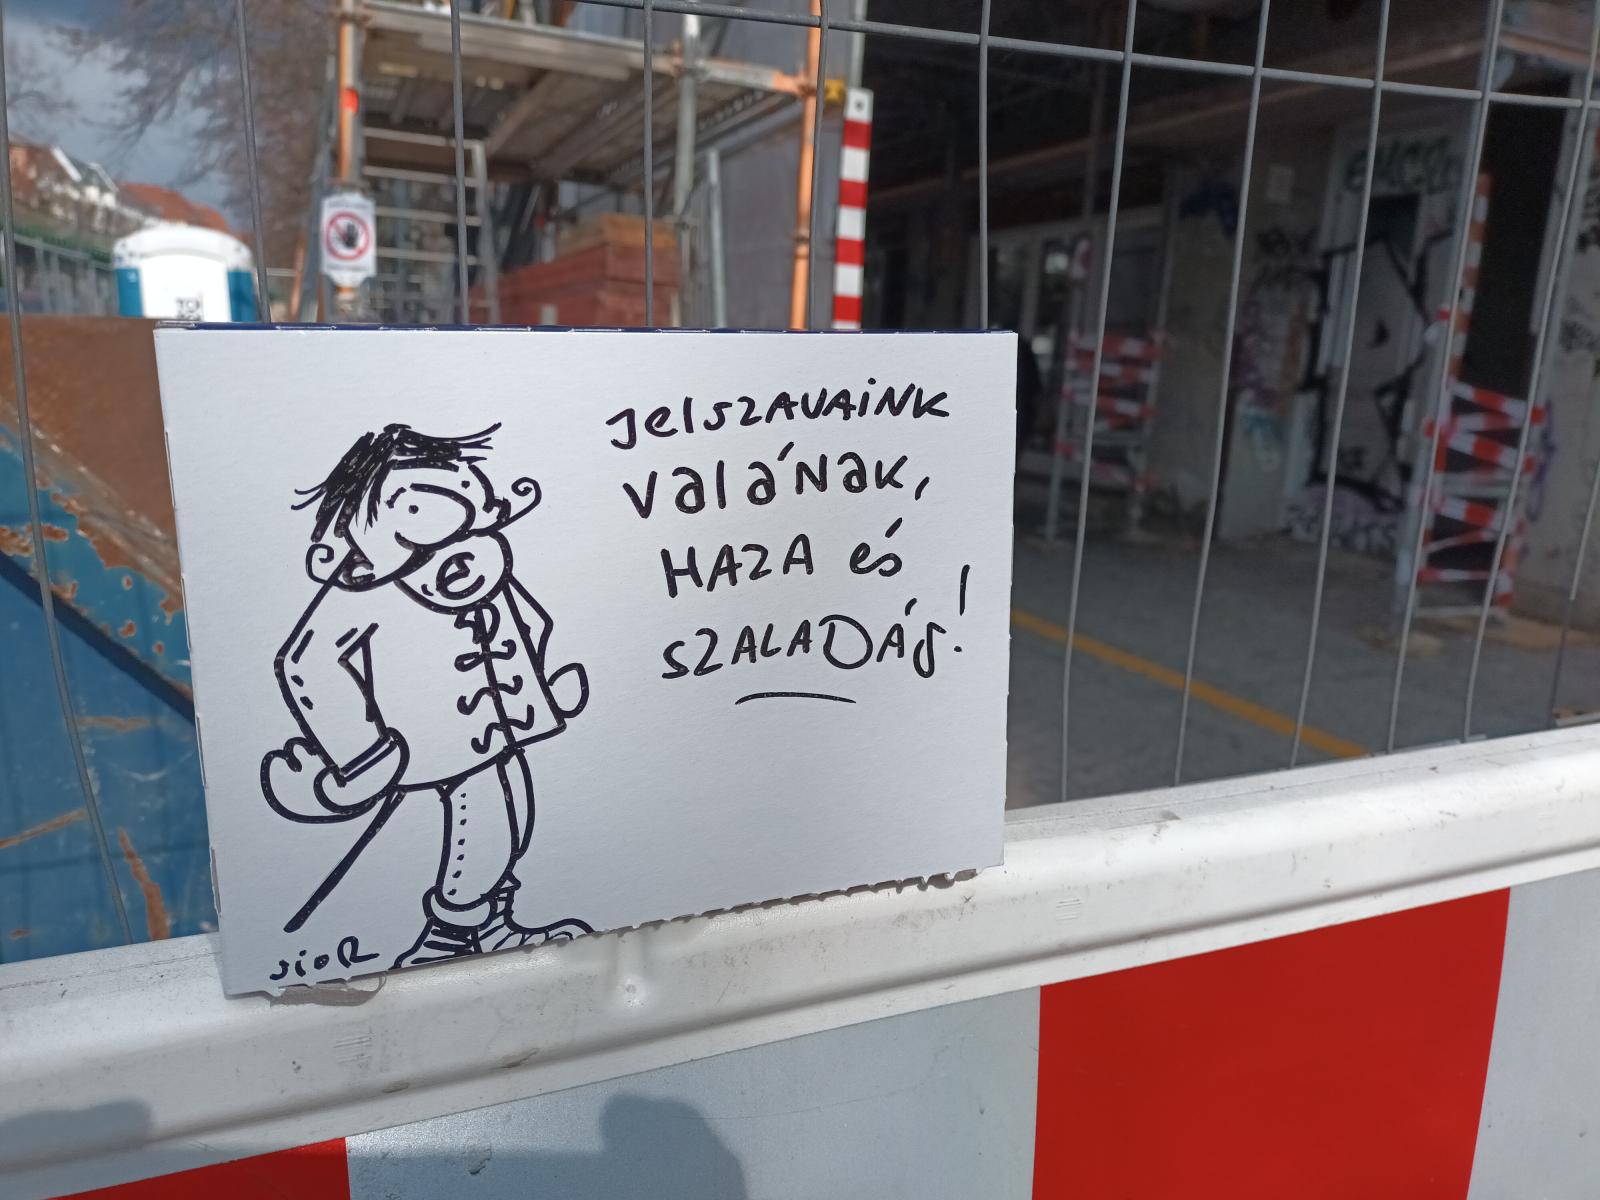 Jelszavaink
valának,
HAZA és
SZALADÁS!
sior